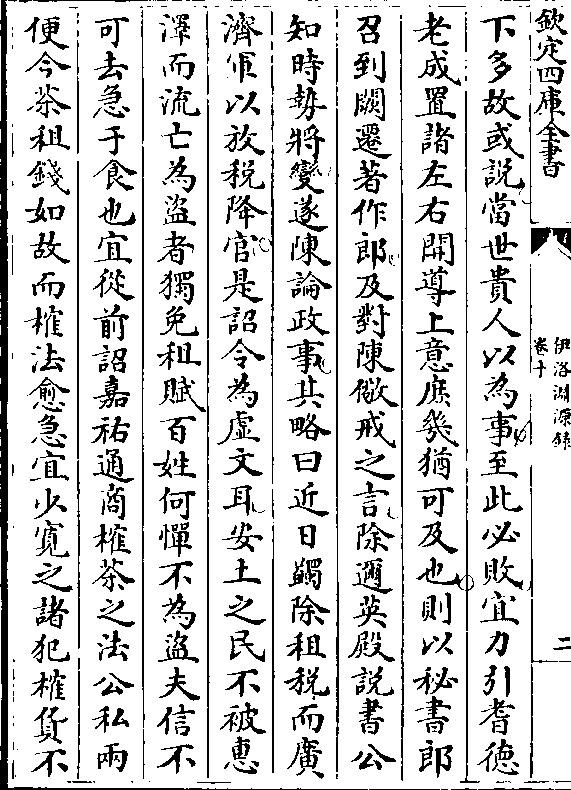 欽定四庫全書
伊洛淵源錄
卷十
二
下多故或説當世貴人以為事至此必敗宜力引耆德
老成置諸左右開導上意庶幾猶可及也則以秘書郎
召到闕遷著作郎及對陳儆戒之言除邇英殿説書公
知時勢將變遂陳論政事其略曰近日蠲除租税而廣
濟軍以放税降官是詔令為虛文耳安土之民不被惠
澤而流亡為盜者獨免租賦百姓何憚不為盜夫信不
可去急于食也宜從前詔嘉祐通商榷茶之法公私兩
便今茶租錢如故而榷法愈急宜少寛之諸犯榷貨不